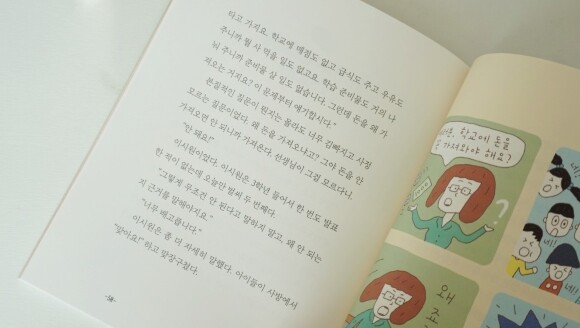 타고 가지요. 학교에 매점도 없고 급식도 주고 우유도
주니까 뭘 사 먹을 일도 없고요. 학습 준비물도 거의 나
눠 주니까 준비물 살 일도 없습니다. 그런데 돈을 왜 가
져오는 거지요? 이 문제부터 얘기합시다."
본질적인 질문이 뭔지는 몰라도 너무 김빠지고 사정
모르는 질문이었다. 왜 돈을 가져오냐고? 그야 돈을 안
가져오면 안 되니까 가져온다. 선생님이 그걸 모르다니.
"안 돼요!"
이시원이었다. 이시원은 3학년 들어서 한 번도 발표
한 적이 없는데 오늘만 벌써 두 번째다.
"그렇게 무조건 안 된다고 말하지 말고, 왜 안 되는
지 근거를 말해야지요."
"너무 애교합니다."
이시원은 좀 더 자세히 말했다. 아이들이 사방에서
"맞아요!" 하고 맞장구쳤다.
학교에 돈을
가져와야 해요?
네!
네!!
왜
죠